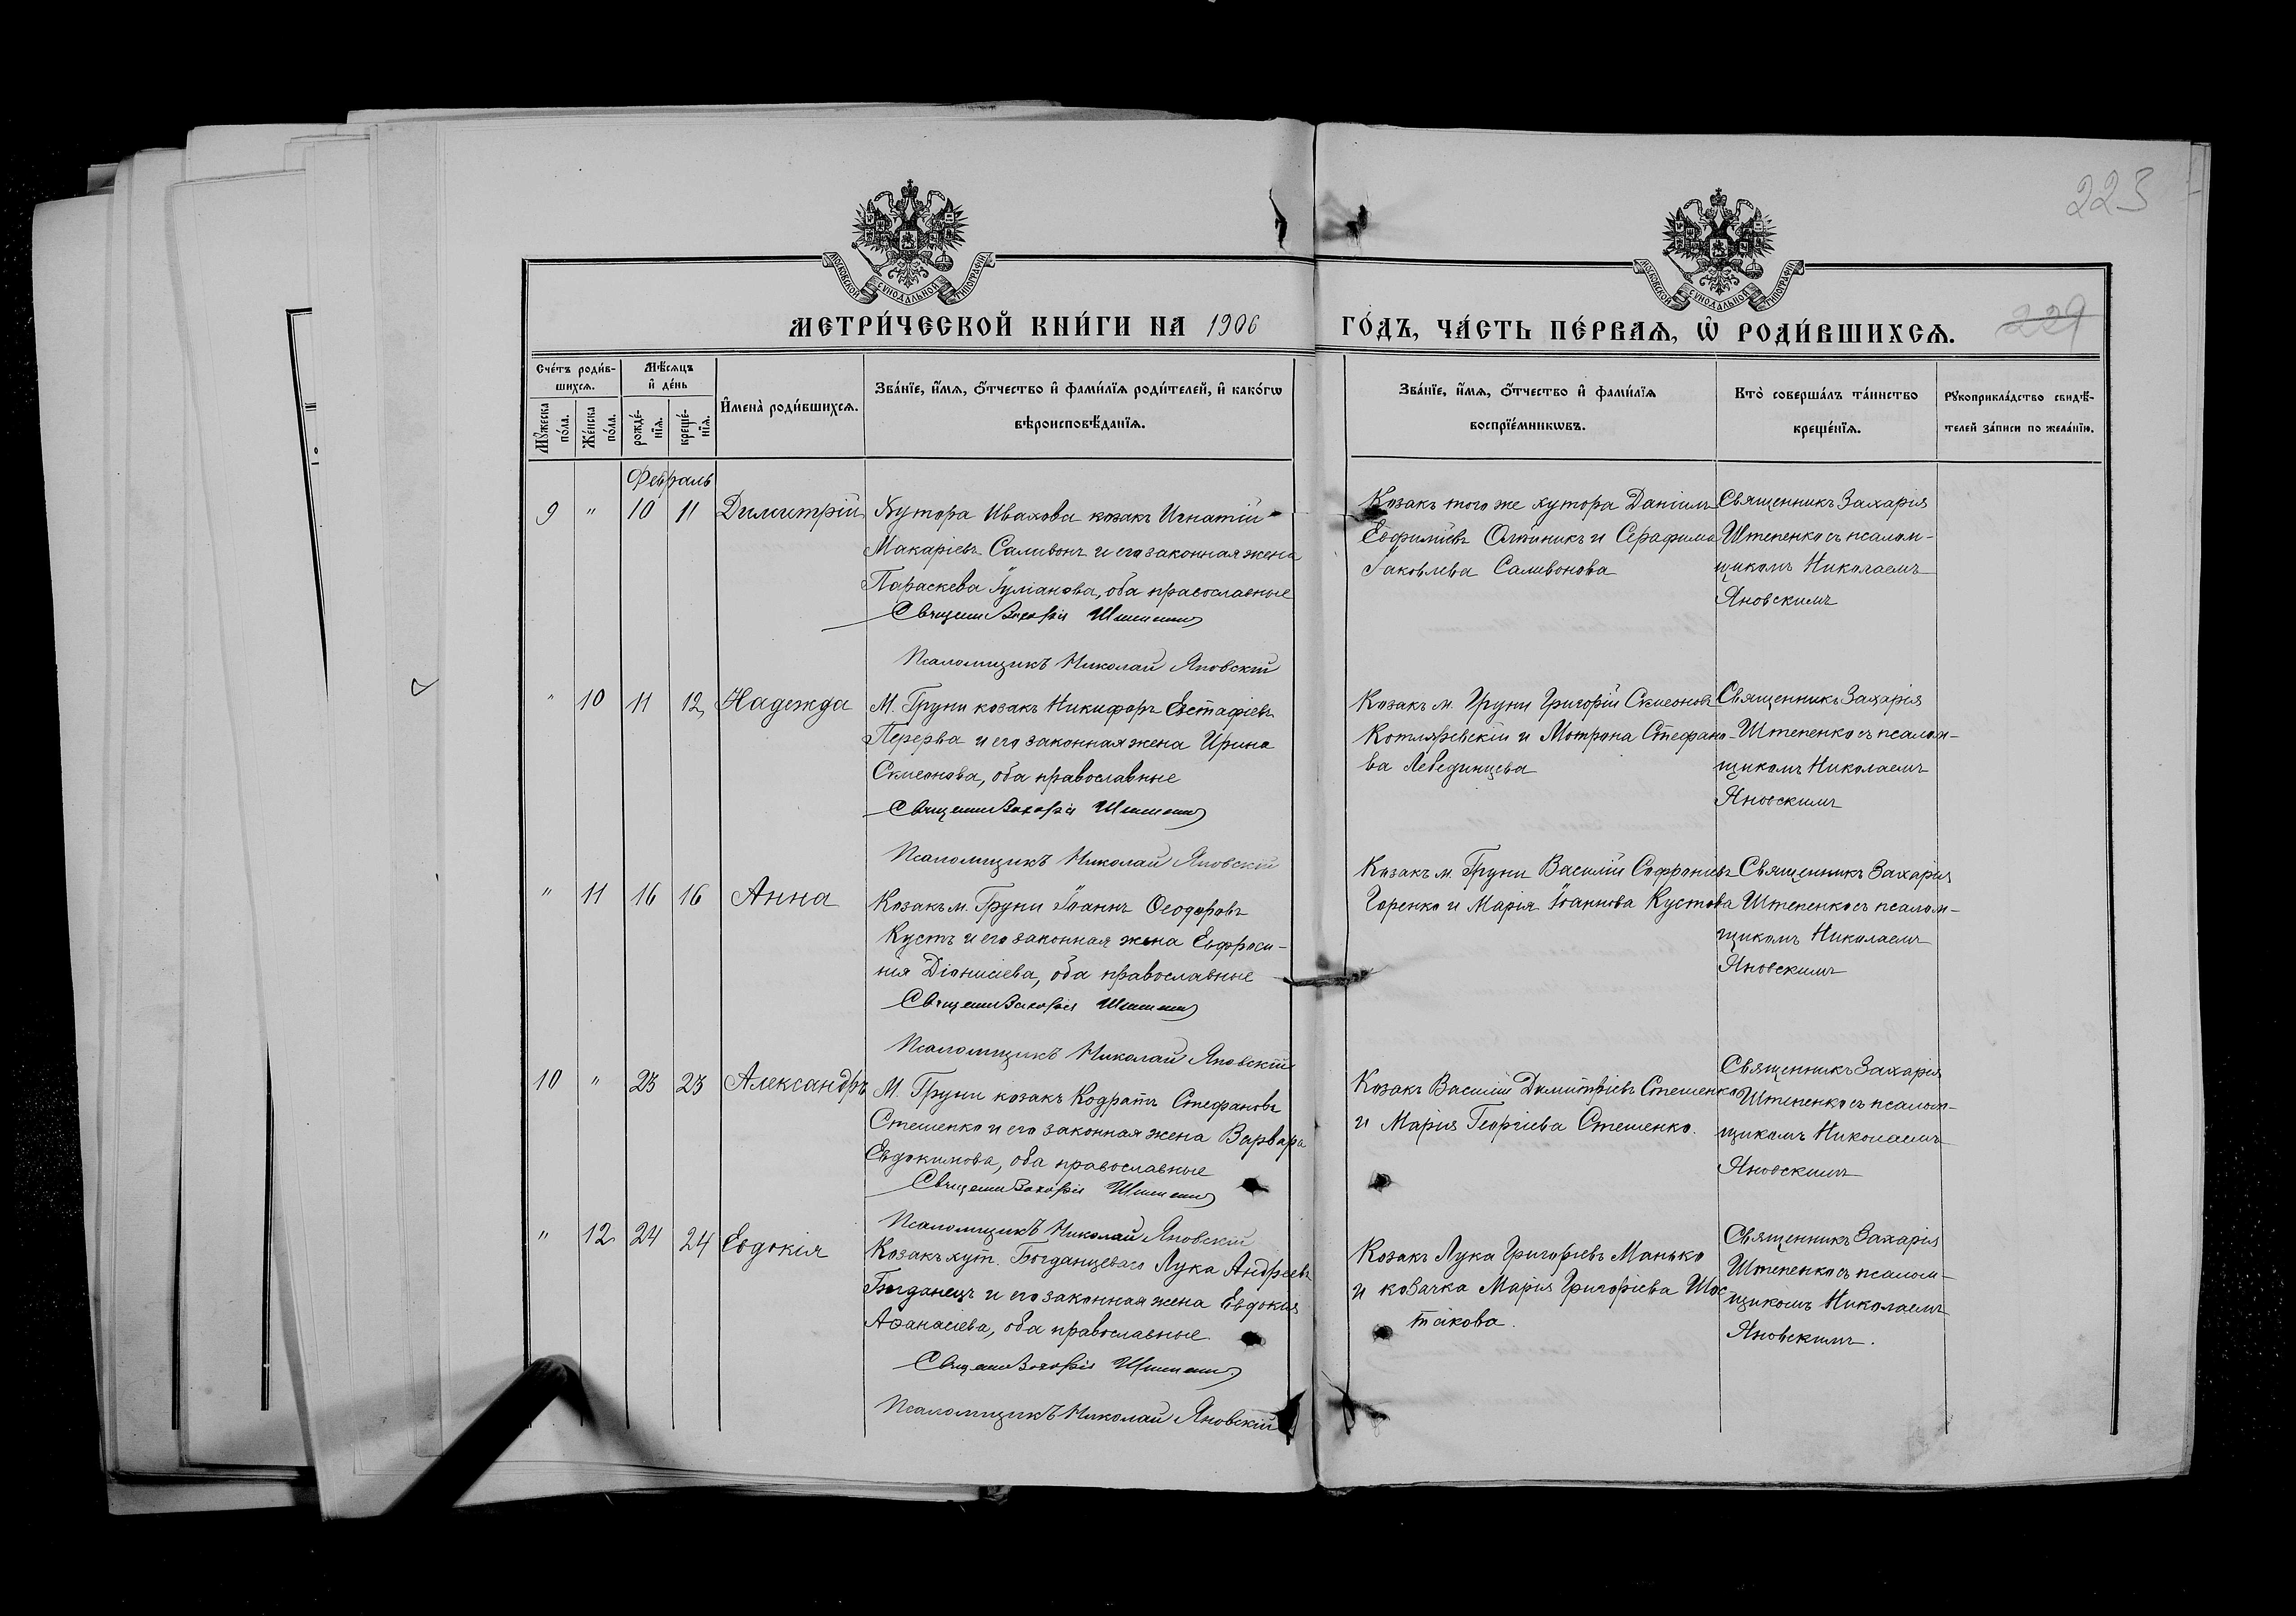 223
МОСКОВСКОЙ СУНОДАЛЬНОЙ ТИПОГРАФІИ
МОСКОВСКОЙ СУНОДАЛЬНОЙ ТИПОГРАФІИ
МЕТРИ́ЧЕСКОЙ КНИ́ГИ НА 1906
ГО́ДЪ, ЧА́СТЬ ПЕ́РВАѦ, Ѡ҆ РОДИ́ВШИХСѦ.
229
Сче́тъ роди́в-
шихсѧ.
Мѣ́сяцъ
и҆ де́нь
Мꙋ́жеска
по́ла.
Же́нска
по́ла.
рожде́-
нїѧ.
креще́-
нїѧ.
И҆мена̀ роди́вшихсѧ.
Зва́нїе, и҆́мѧ, ѻ҆́тчество и҆ фами́лїѧ роди́телей, и҆ како́гѡ
вѣроисповѣ́данїѧ.
Зва́нїе, и҆́мѧ, ѻ҆́тчество и҆ фами́лїѧ
воспрїе́мникѡвъ.
Кто̀ соверша́лъ та́инство
креще́нїѧ.
Рꙋкоприкла́дство свидѣ́-
телей за́писи по жела́нїю.
Февраль
9 " 10 11 Димитрій
Хутора Ивахова козакъ Игнатій
Макаріевъ Саливонъ и его законная жена
Параскева Гуліанова, оба православные
Священ Захарія
Псаломщикъ Николай Яновскій
Козакъ того же хутора Даніилъ
Евфиміевъ Олтиникъ и Серафима
Іаковлева Саливонова
Священникъ Захарія
Штепенко съ псалом-
щикомъ Николаемъ
Яновскимъ
" 10 11 12 Надежда
М. Груни козакъ Никифоръ Евстафіевъ
Перерва и его законная жена Ирина
Симеонова, оба православные
Священ Захарія
Псаломщикъ Николай Яновскій
Козакъ м. Груни Григорій Симеоновъ
Котляревскій и Мотрона Стефано-
ва Лебединцева
Священникъ Захарія
Штепенко съ псалом-
щикомъ Николаемъ
Яновскимъ
" 11 16 16 Анна
Козакъ м. Груни Іоаннъ Ѳеодоровъ
Кустъ и его законная жена Евфроси-
нія Діонисіева, оба православные
Священ Захарія
Псаломщикъ Николай Яновскій
Козакъ м. Груни Василій Софроніевъ
Горенко и Марія Іоаннова Кустова
Священникъ Захарія
Штепенко съ псалом-
щикомъ Николаемъ
Яновскимъ
10 " 23 23 Александръ
М. Груни козакъ Кодратъ Стефановъ
Стешенко и его законная жена Варвара
Евдокимова, оба православные
Священ Захарія
Псаломщикъ Николай Яновскій
Козакъ Василій Димитріевъ Стешенко
и Марія Георгіева Стешенко.
Священникъ Захарія
Штепенко съ псалом-
щикомъ Николаемъ
Яновскимъ
" 12 24 24 Евдокія
Козакъ хут. Богданцеваго Лука Андреевъ
Богданецъ и его законная жена Евдокія
Аѳанасіева, оба православные.
Священ Захарія
Псаломщикъ Николай Яновскій
Козакъ Лука Григоріевъ Манько
и козачка Марія Григоріева Шос-
такова.
Священникъ Захарія
Штепенко съ псалом-
щикомъ Николаемъ
Яновскимъ.